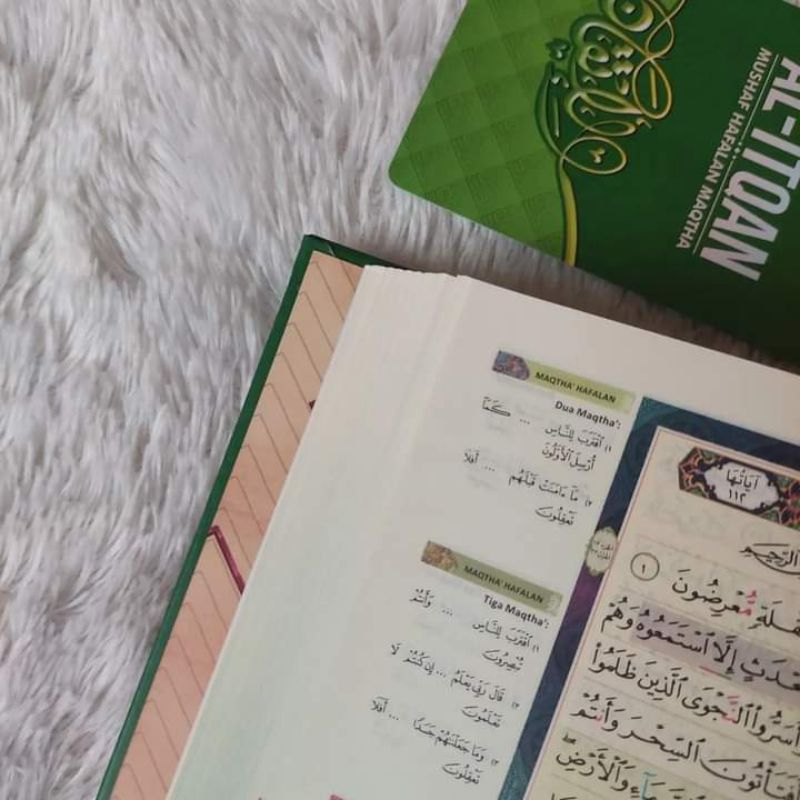 الإتقان
AL-ITQAN
MUSHAF HAFALAN MAQTHA
MAQTHA' HAFALAN
Dua Maqtha':
١) ٱقْتَرَبَ لِلنَّاسِ ... كَمَآ
أُرْسِلَ ٱلْأَوَّلُونَ
٢) مَآ ءَامَنَتْ قَبْلَهُم ... أَفَلَا
تَعْقِلُونَ
MAQTHA' HAFALAN
Tiga Maqtha':
١) ٱقْتَرَبَ لِلنَّاسِ ... وَأَنتُمْ
تُبْصِرُونَ
٢) قَالَ رَبِّى يَعْلَمُ ... إِن كُنتُمْ لَا
تَعْلَمُونَ
٣) وَمَا جَعَلْنَٰهُمْ جَسَدًا ... أَفَلَا
تَعْقِلُونَ
آيَاتُهَا
١١٢
الرَّحِيمِ
مُّعْرِضُونَ ١
إِلَّا ٱسْتَمَعُوهُ وَهُمْ
أَسَرُّوا۟ ٱلنَّجْوَى ٱلَّذِينَ ظَلَمُوا۟
أَفَتَأْتُونَ ٱلسِّحْرَ وَأَنتُمْ
وَٱلْأَرْضِ